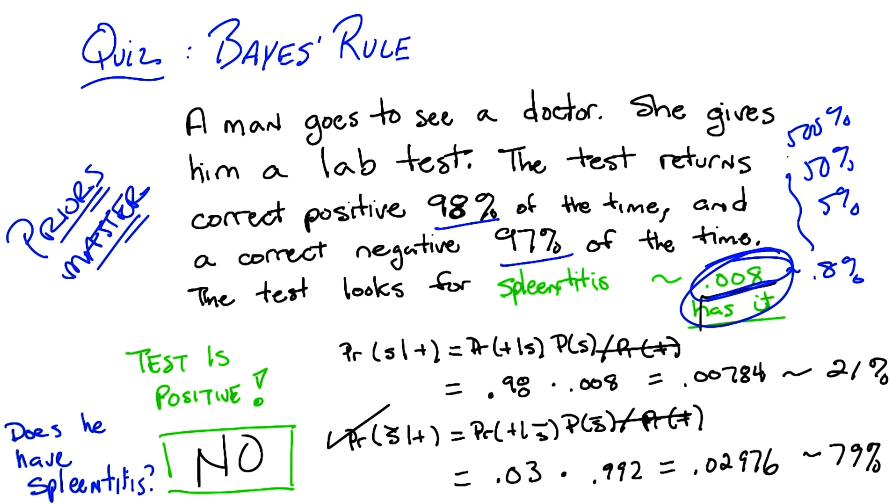 Quiz : BAYES' RULE
A man goes to see a doctor. She gives
him a lab test. The test returns
correct positive 98% of the time, and
a correct negative 97% of the time.
The test looks for spleentitis ~ .008
has it
500%
50%
5%
.8%
PRIORS
MATTER
TEST IS
POSITIVE!
Does he
have
spleentitis?
NO
Pr(s|+) = Pr(+|s) P(s)/Pr(+)
= .98 · .008 = .00784 ~ 21%
✓Pr(s̄|+) = Pr(+|s̄) P(s̄)/Pr(+)
= .03 · .992 = .02976 ~79%